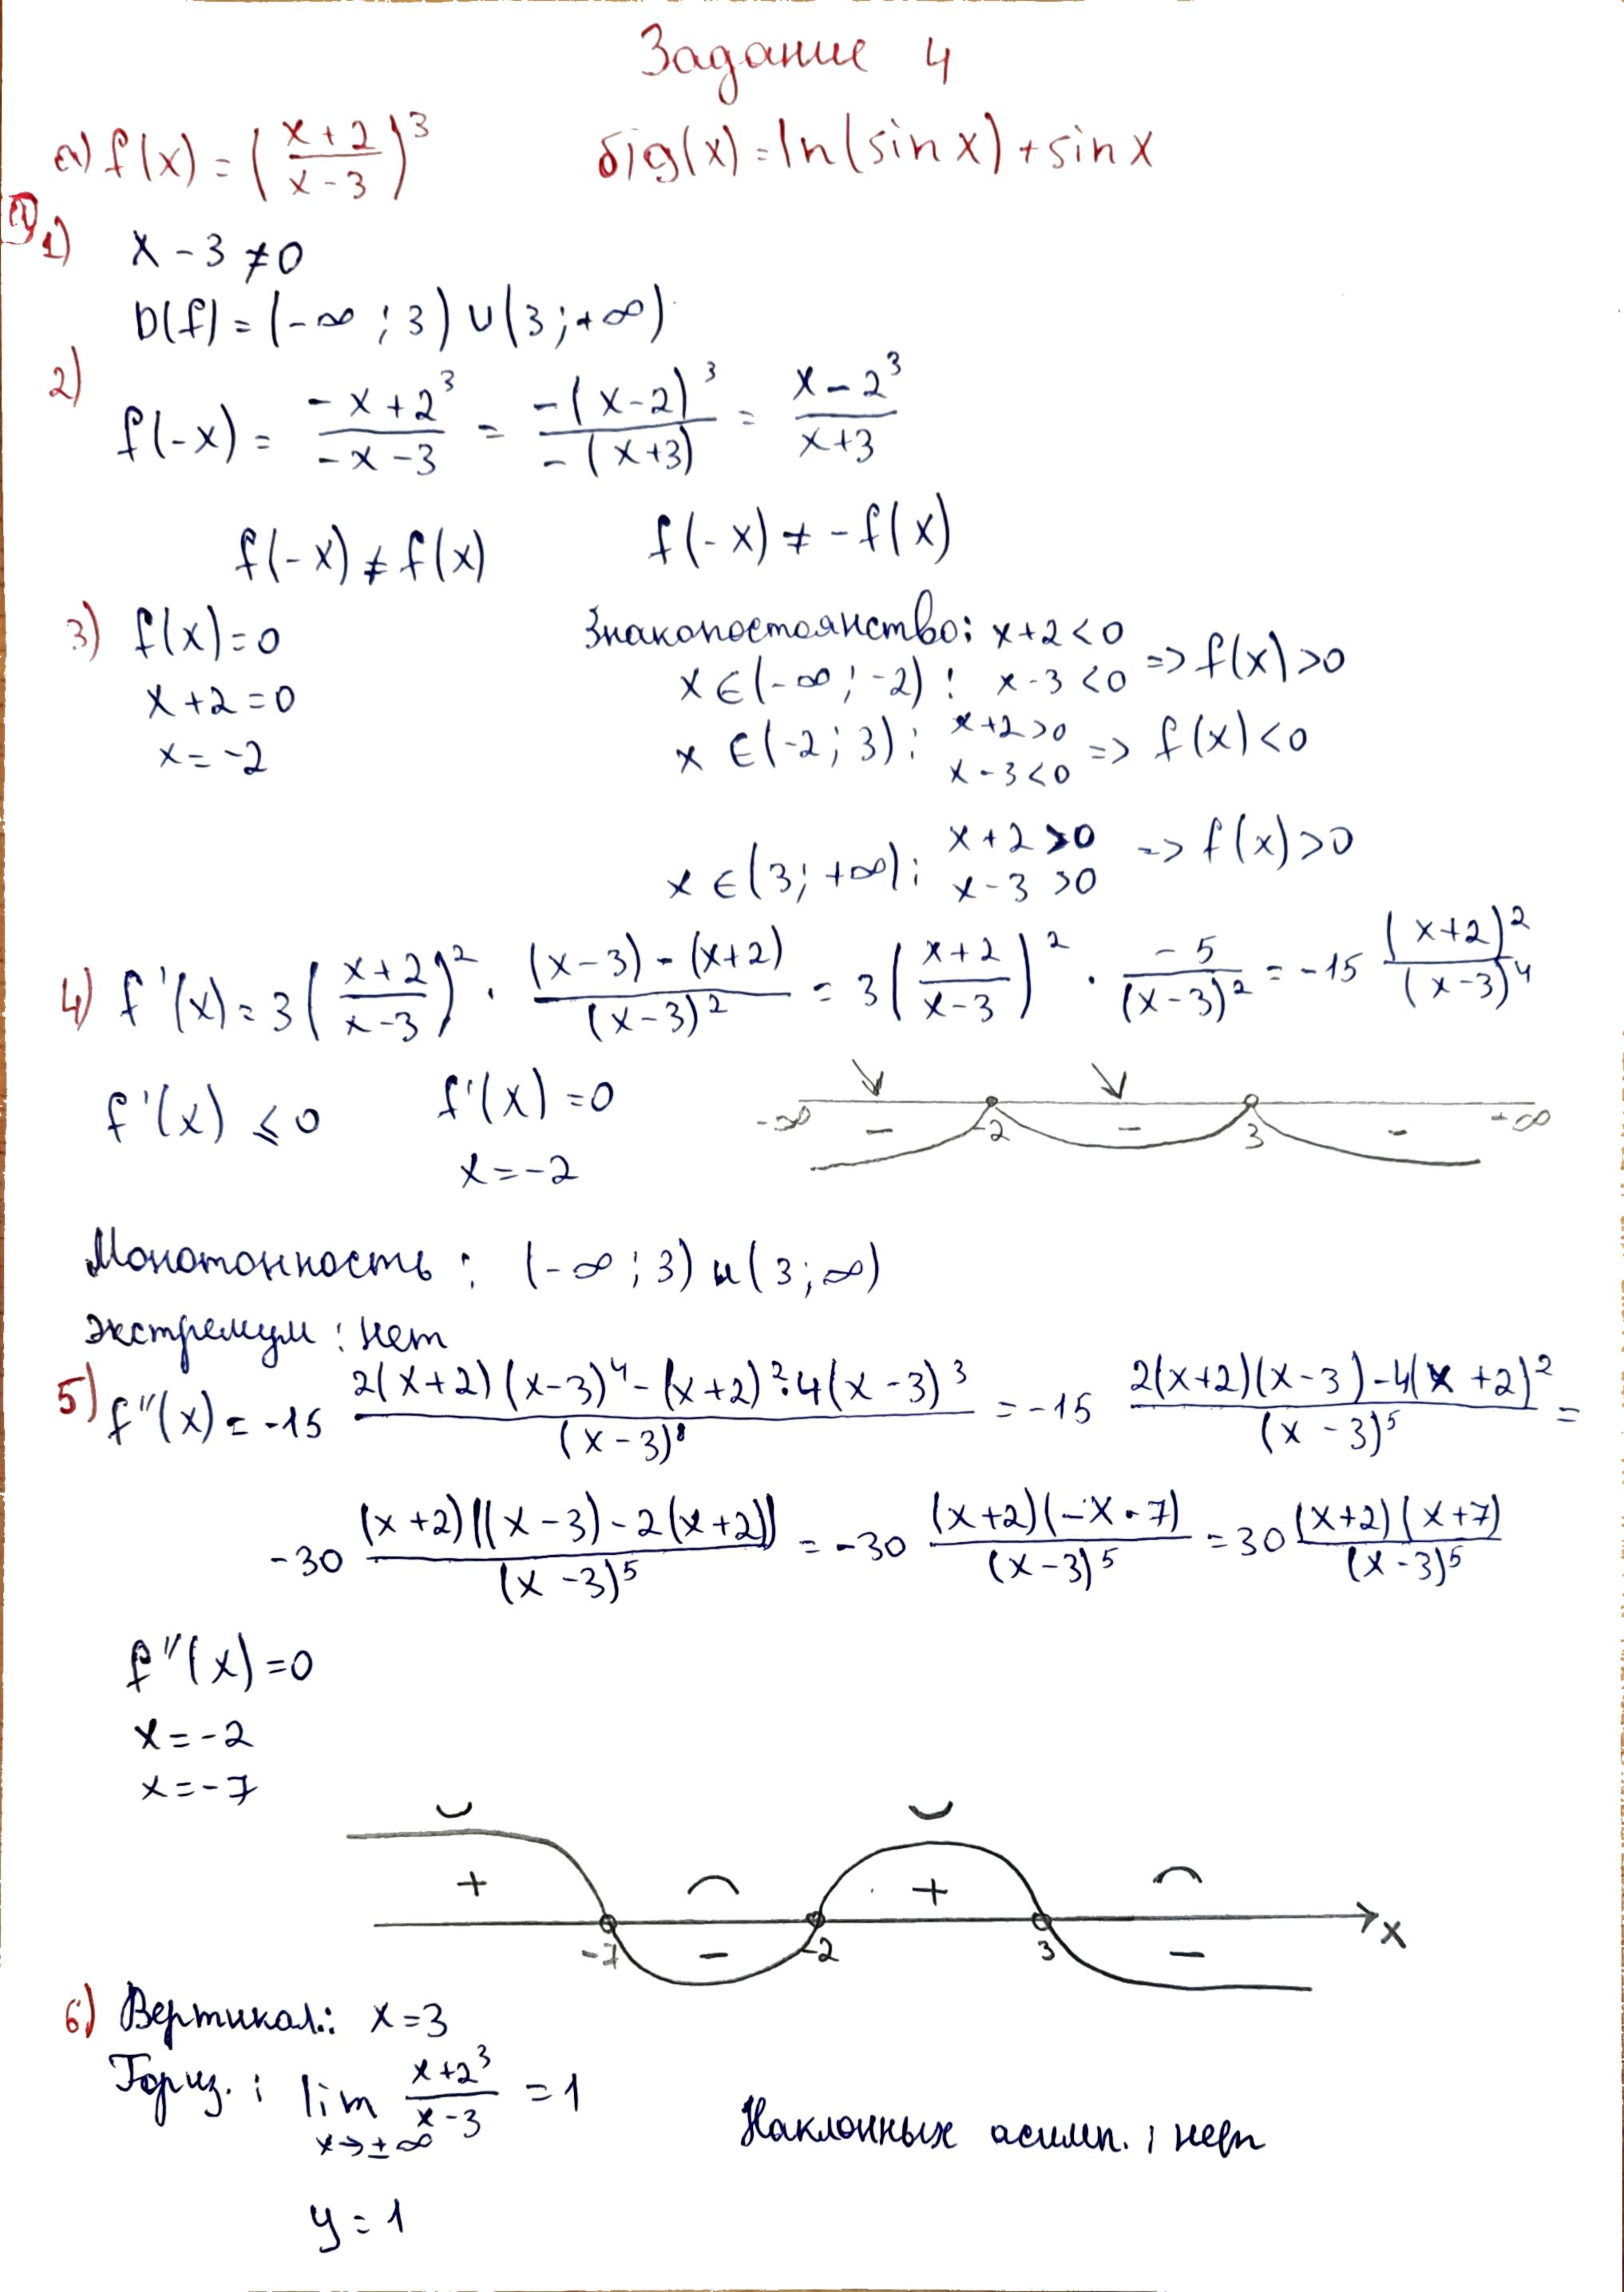 Задание 4
а) f(x) = ((x+2)/(x-3))^3 б) g(x) = ln(sin x) + sin x
1) x - 3 ≠ 0
D(f) = (-∞ ; 3) ∪ (3 ; +∞)
2) f(-x) = (-x+2^3)/(-x-3) = (-(x-2)^3)/(-(x+3)) = (x-2^3)/(x+3)
f(-x) ≠ f(x) f(-x) ≠ -f(x)
3) f(x) = 0
x + 2 = 0
x = -2
Знакопостоянство:
x ∈ (-∞ ; -2) : x+2 < 0 x-3 < 0 => f(x) > 0
x ∈ (-2 ; 3) : x+2 > 0 x-3 < 0 => f(x) < 0
x ∈ (3 ; +∞) : x+2 > 0 x-3 > 0 => f(x) > 0
4) f'(x) = 3((x+2)/(x-3))^2 · ((x-3) - (x+2))/(x-3)^2 = 3((x+2)/(x-3))^2 · (-5)/(x-3)^2 = -15 (x+2)^2/(x-3)^4
f'(x) ≤ 0 f'(x) = 0
x = -2
-∞ - -2 - 3 - +∞
Монотонность : (-∞ ; 3) и (3 ; ∞)
экстремум : нет
5) f''(x) = -15 (2(x+2)(x-3)^4 - (x+2)^2 · 4(x-3)^3)/(x-3)^8 = -15 (2(x+2)(x-3) - 4(x+2)^2)/(x-3)^5 =
-30 ((x+2)((x-3) - 2(x+2)))/(x-3)^5 = -30 ((x+2)(-x-7))/(x-3)^5 = 30 ((x+2)(x+7))/(x-3)^5
f''(x) = 0
x = -2
x = -7
+ - + -
-7 -2 3 x
6) Вертикал.: x = 3
Гориз. : lim x→±∞ (x+2^3)/(x-3) = 1
Наклонных асимп. : нет
y = 1